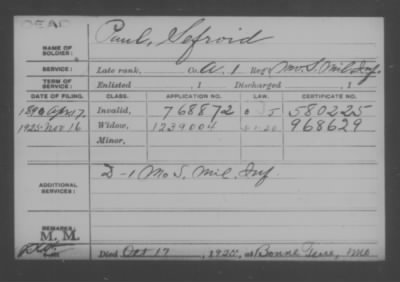 DEAD
NAME OF SOLDIER: Paul, Sefroid
SERVICE: Late rank, Co. A. 1 Reg't Mo. S. Mil. Inf.
TERM OF SERVICE: Enlisted , 1 Discharged , 1
DATE OF FILING. CLASS. APPLICATION NO. LAW. CERTIFICATE NO.
1890 Apr 7. Invalid, 768872 580225
1925 Nov 16 Widow, 1239004 968629
Minor,
ADDITIONAL SERVICES: D-1 Mo S. Mil. Inf
REMARKS:
M. M.
Died Oct 17, 1925, at Bonne Terre, Mo